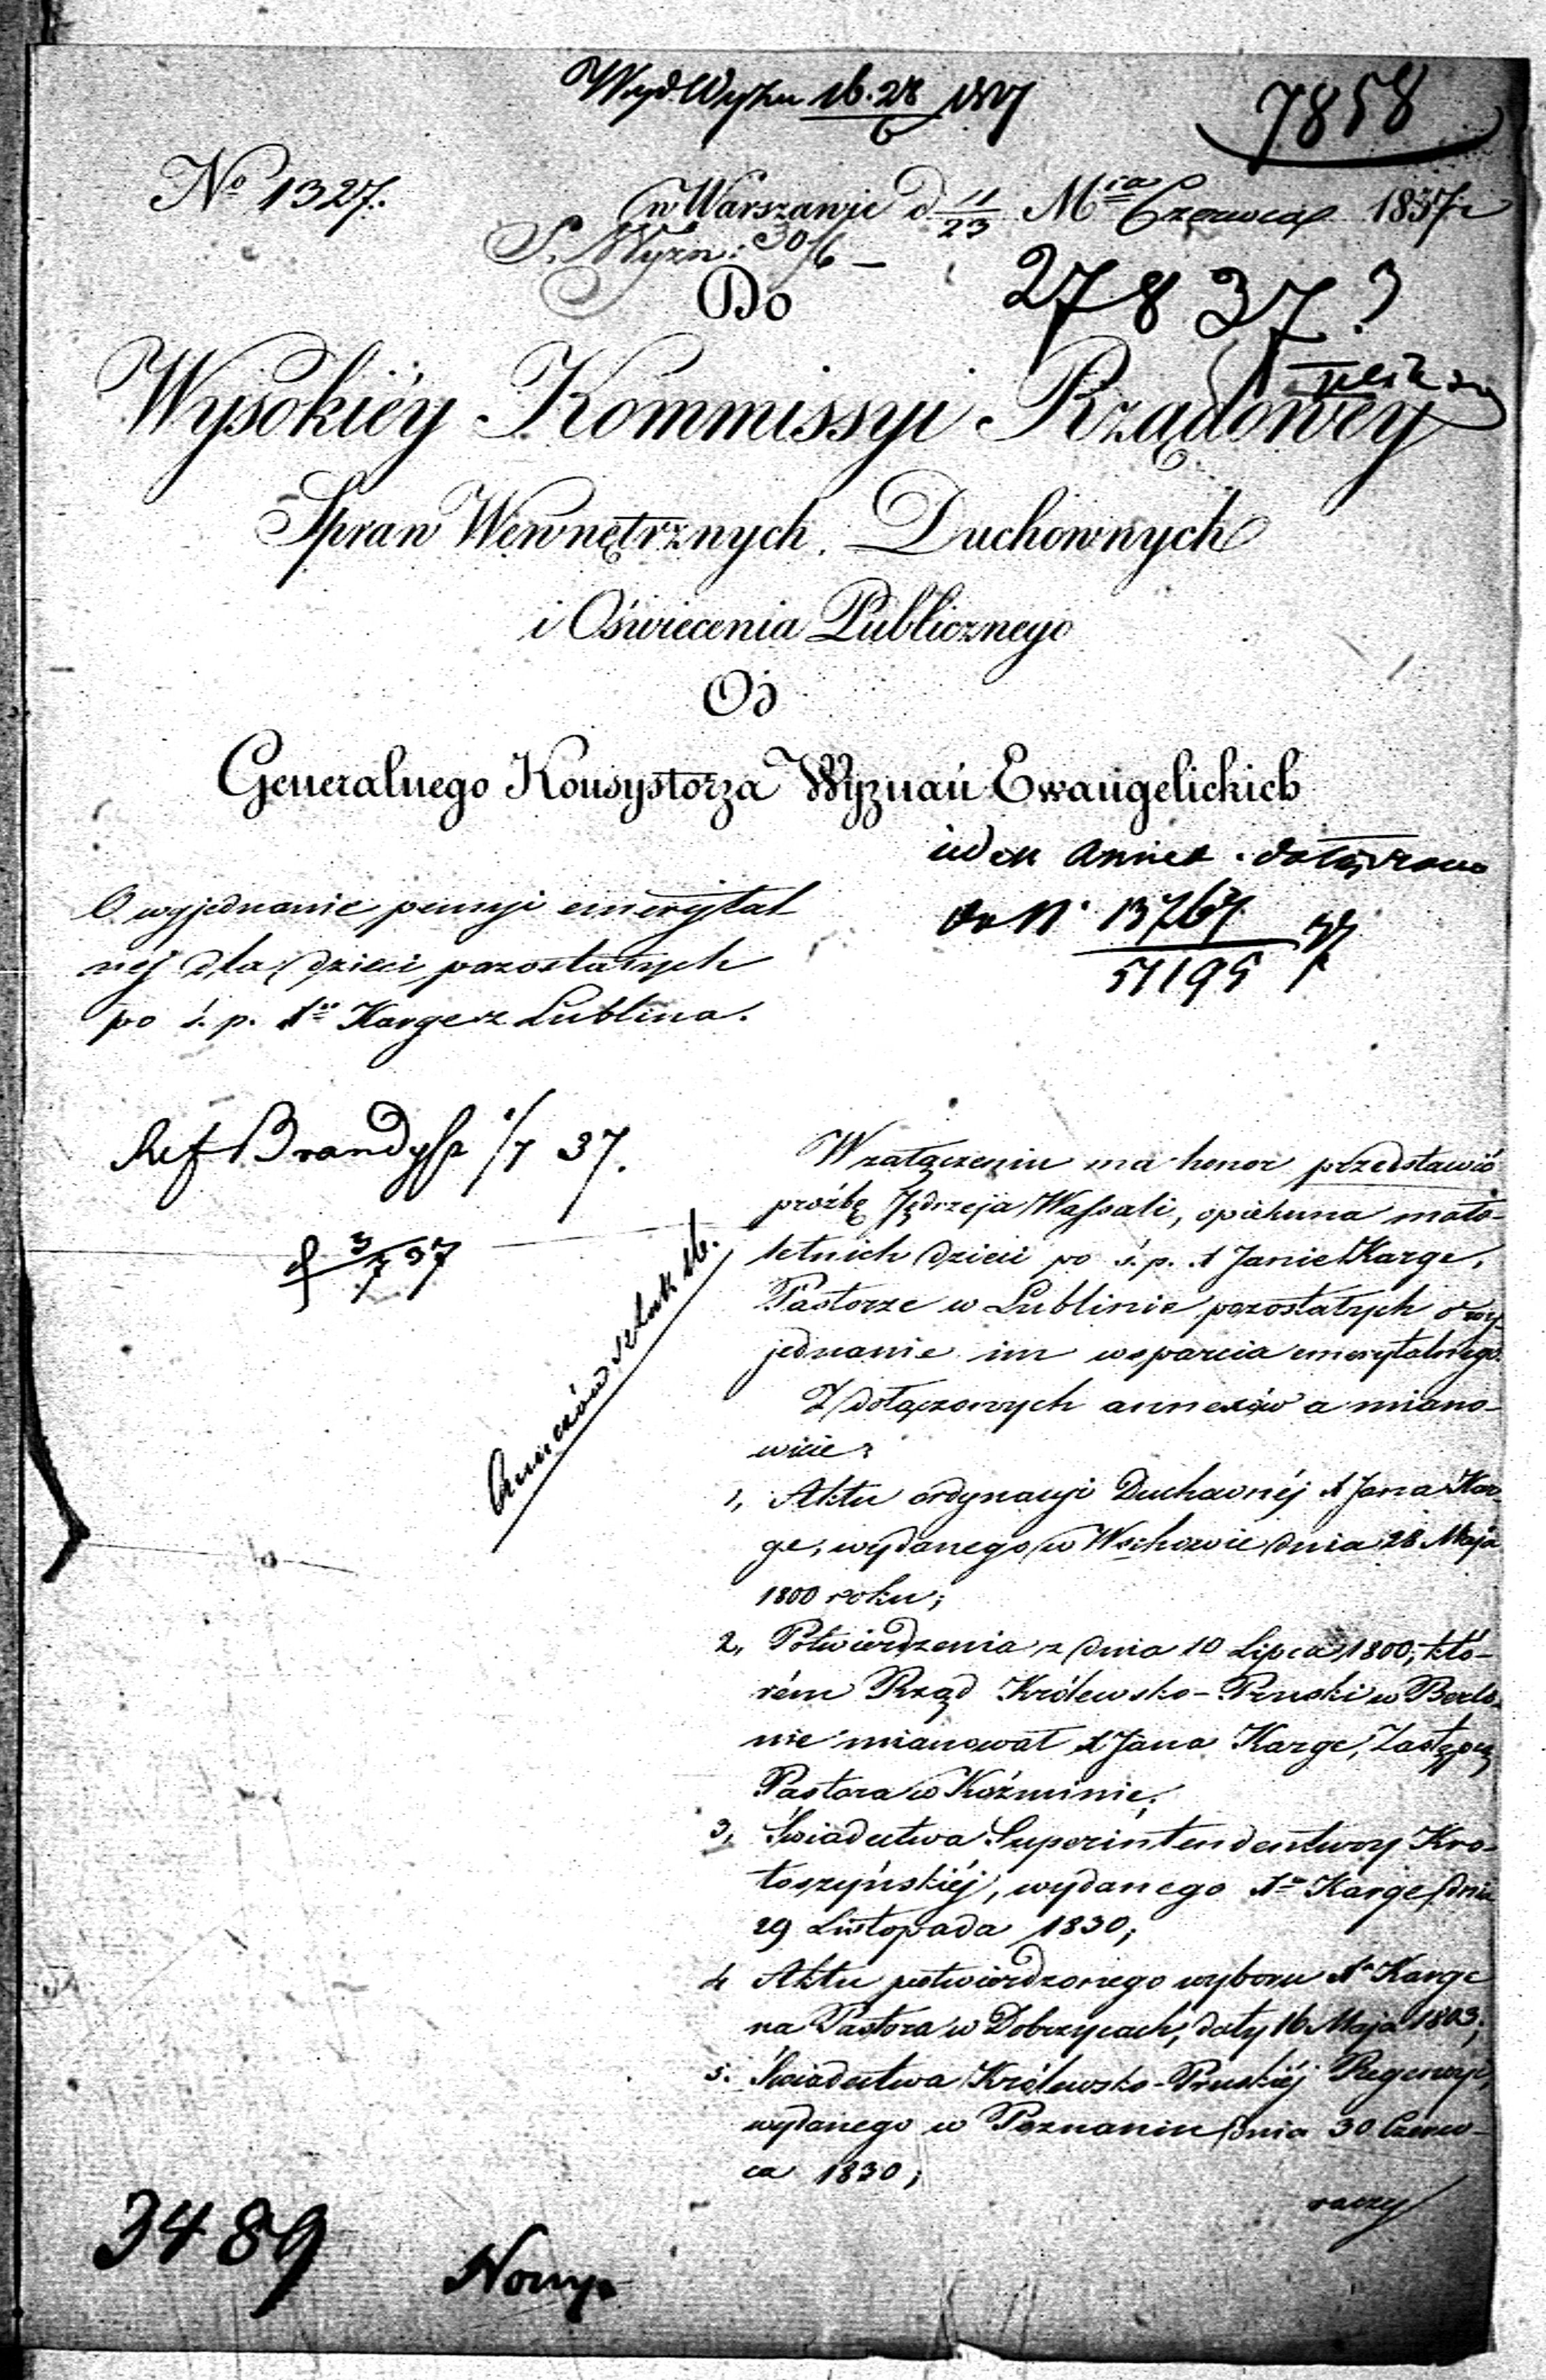 7858
No 1327.
w Warszawie d 11/23 Mca Czerwca 1837 r
S. Wyzn: 30/6 —
Do
27837
Wysokiéy Kommissyi Rządowéy
Spraw Wewnętrznych, Duchownych
i Oświecenia Publicznego
Od
Generalnego Konsystorza Wyznań Ewangelickich
O wyjednanie pensyi emerytal
nej dla dzieci pozostałych
po ś. p. Xu Karge z Lublina.
do N. 13767
51195
Ref Brandysz 1/7 37.
3/7 37
Annexów sztuk 16.
W załączeniu ma honor przedstawić
prośbę Jędrzeja Wassali, opiekuna mało-
letnich dzieci po ś. p. X Janie Karge,
Pastorze w Lublinie pozostałych o wy
jednanie im wsparcia emerytalnego.
Z dołączonych annexów a miano-
wicie:
1, Aktu ordynacyi Duchownéj X Jana Kar
ge, wydanego w Wschowie dnia 28 Maja
1800 roku;
2, Potwierdzenia z dnia 10 Lipca 1800, któ-
rém Rząd Królewsko-Pruski w Berli-
nie mianował X Jana Karge, Zastępcą
Pastora w Koźminie;
3, Świadectwa Superintendentury Kro-
toszyńskiéj, wydanego Xu Karge dnia
29 Listopada 1830;
4 Aktu potwierdzonego wyboru Xa Karge
na Pastora w Dobrzycach, daty 16 Maja 1803;
5. Świadectwa Królewsko-Pruskiéj Regencyi,
wydanego w Poznaniu dnia 30 Czerw-
ca 1830;
raczy
3489